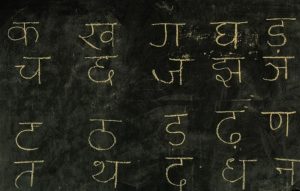 क ख ग घ ङ
च छ ज झ ञ
ट ठ ड ढ़ ण
त थ द ध न